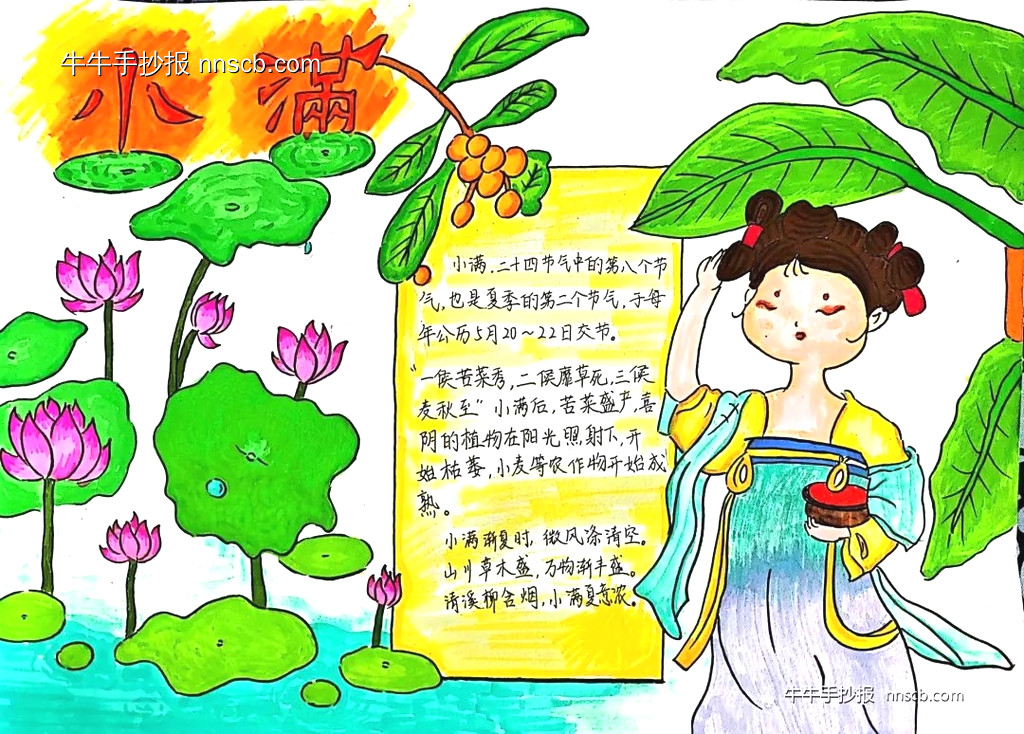 牛牛手抄报 nnscb.com
小满
小满，二十四节气中的第八个节
气，也是夏季的第二个节气，于每
年公历5月20～22日交节。
"一候苦菜秀，二候靡草死，三候
麦秋至"小满后，苦菜盛产，喜
阴的植物在阳光照射下，开
始枯萎，小麦等农作物开始成
熟。
小满渐夏时，微风涤清空。
山川草木盛，万物渐丰盛。
清溪柳含烟，小满夏意浓。
牛牛手抄报 nnscb.com